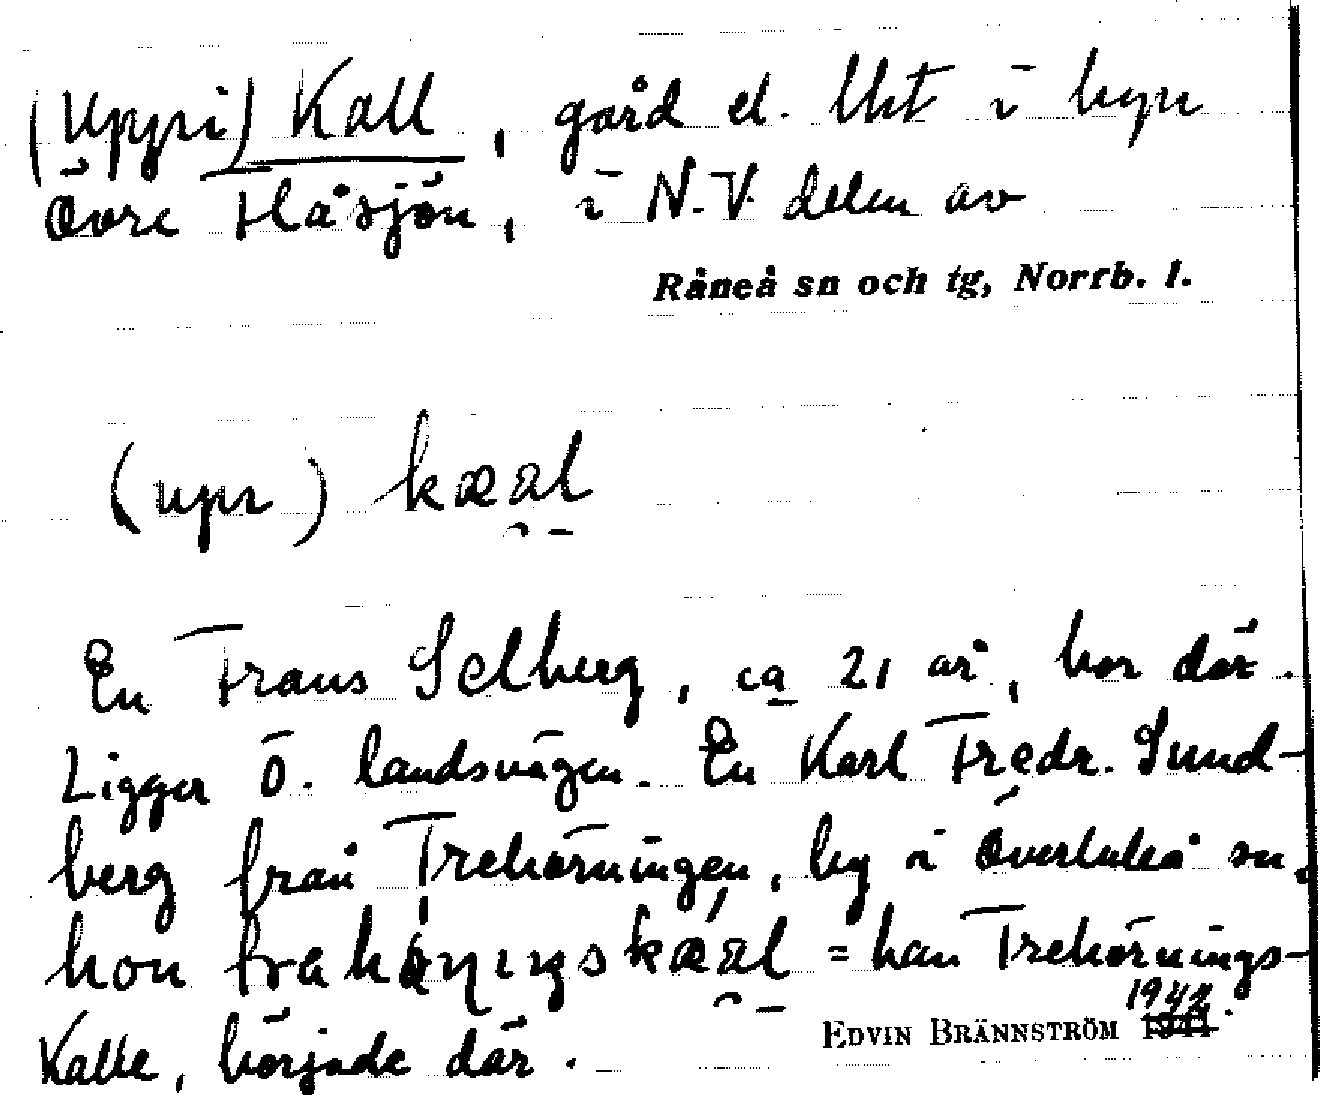 (Uppi) Kall, gård el. Uht i byn
Övre Flåsjön, i N.V. delen av
Råneå sn och tg, Norrb. l.
(upı) kæal
En Frans Selberg, ca 21 år, bor där.
Ligger Ö. landsvägen. En Karl Fredr. Sund-
berg från Trehörningen, by i Överluleå sn,
hon = han Trehörnings-
Kalle, började där.
EDVIN BRÄNNSTRÖM 1942.